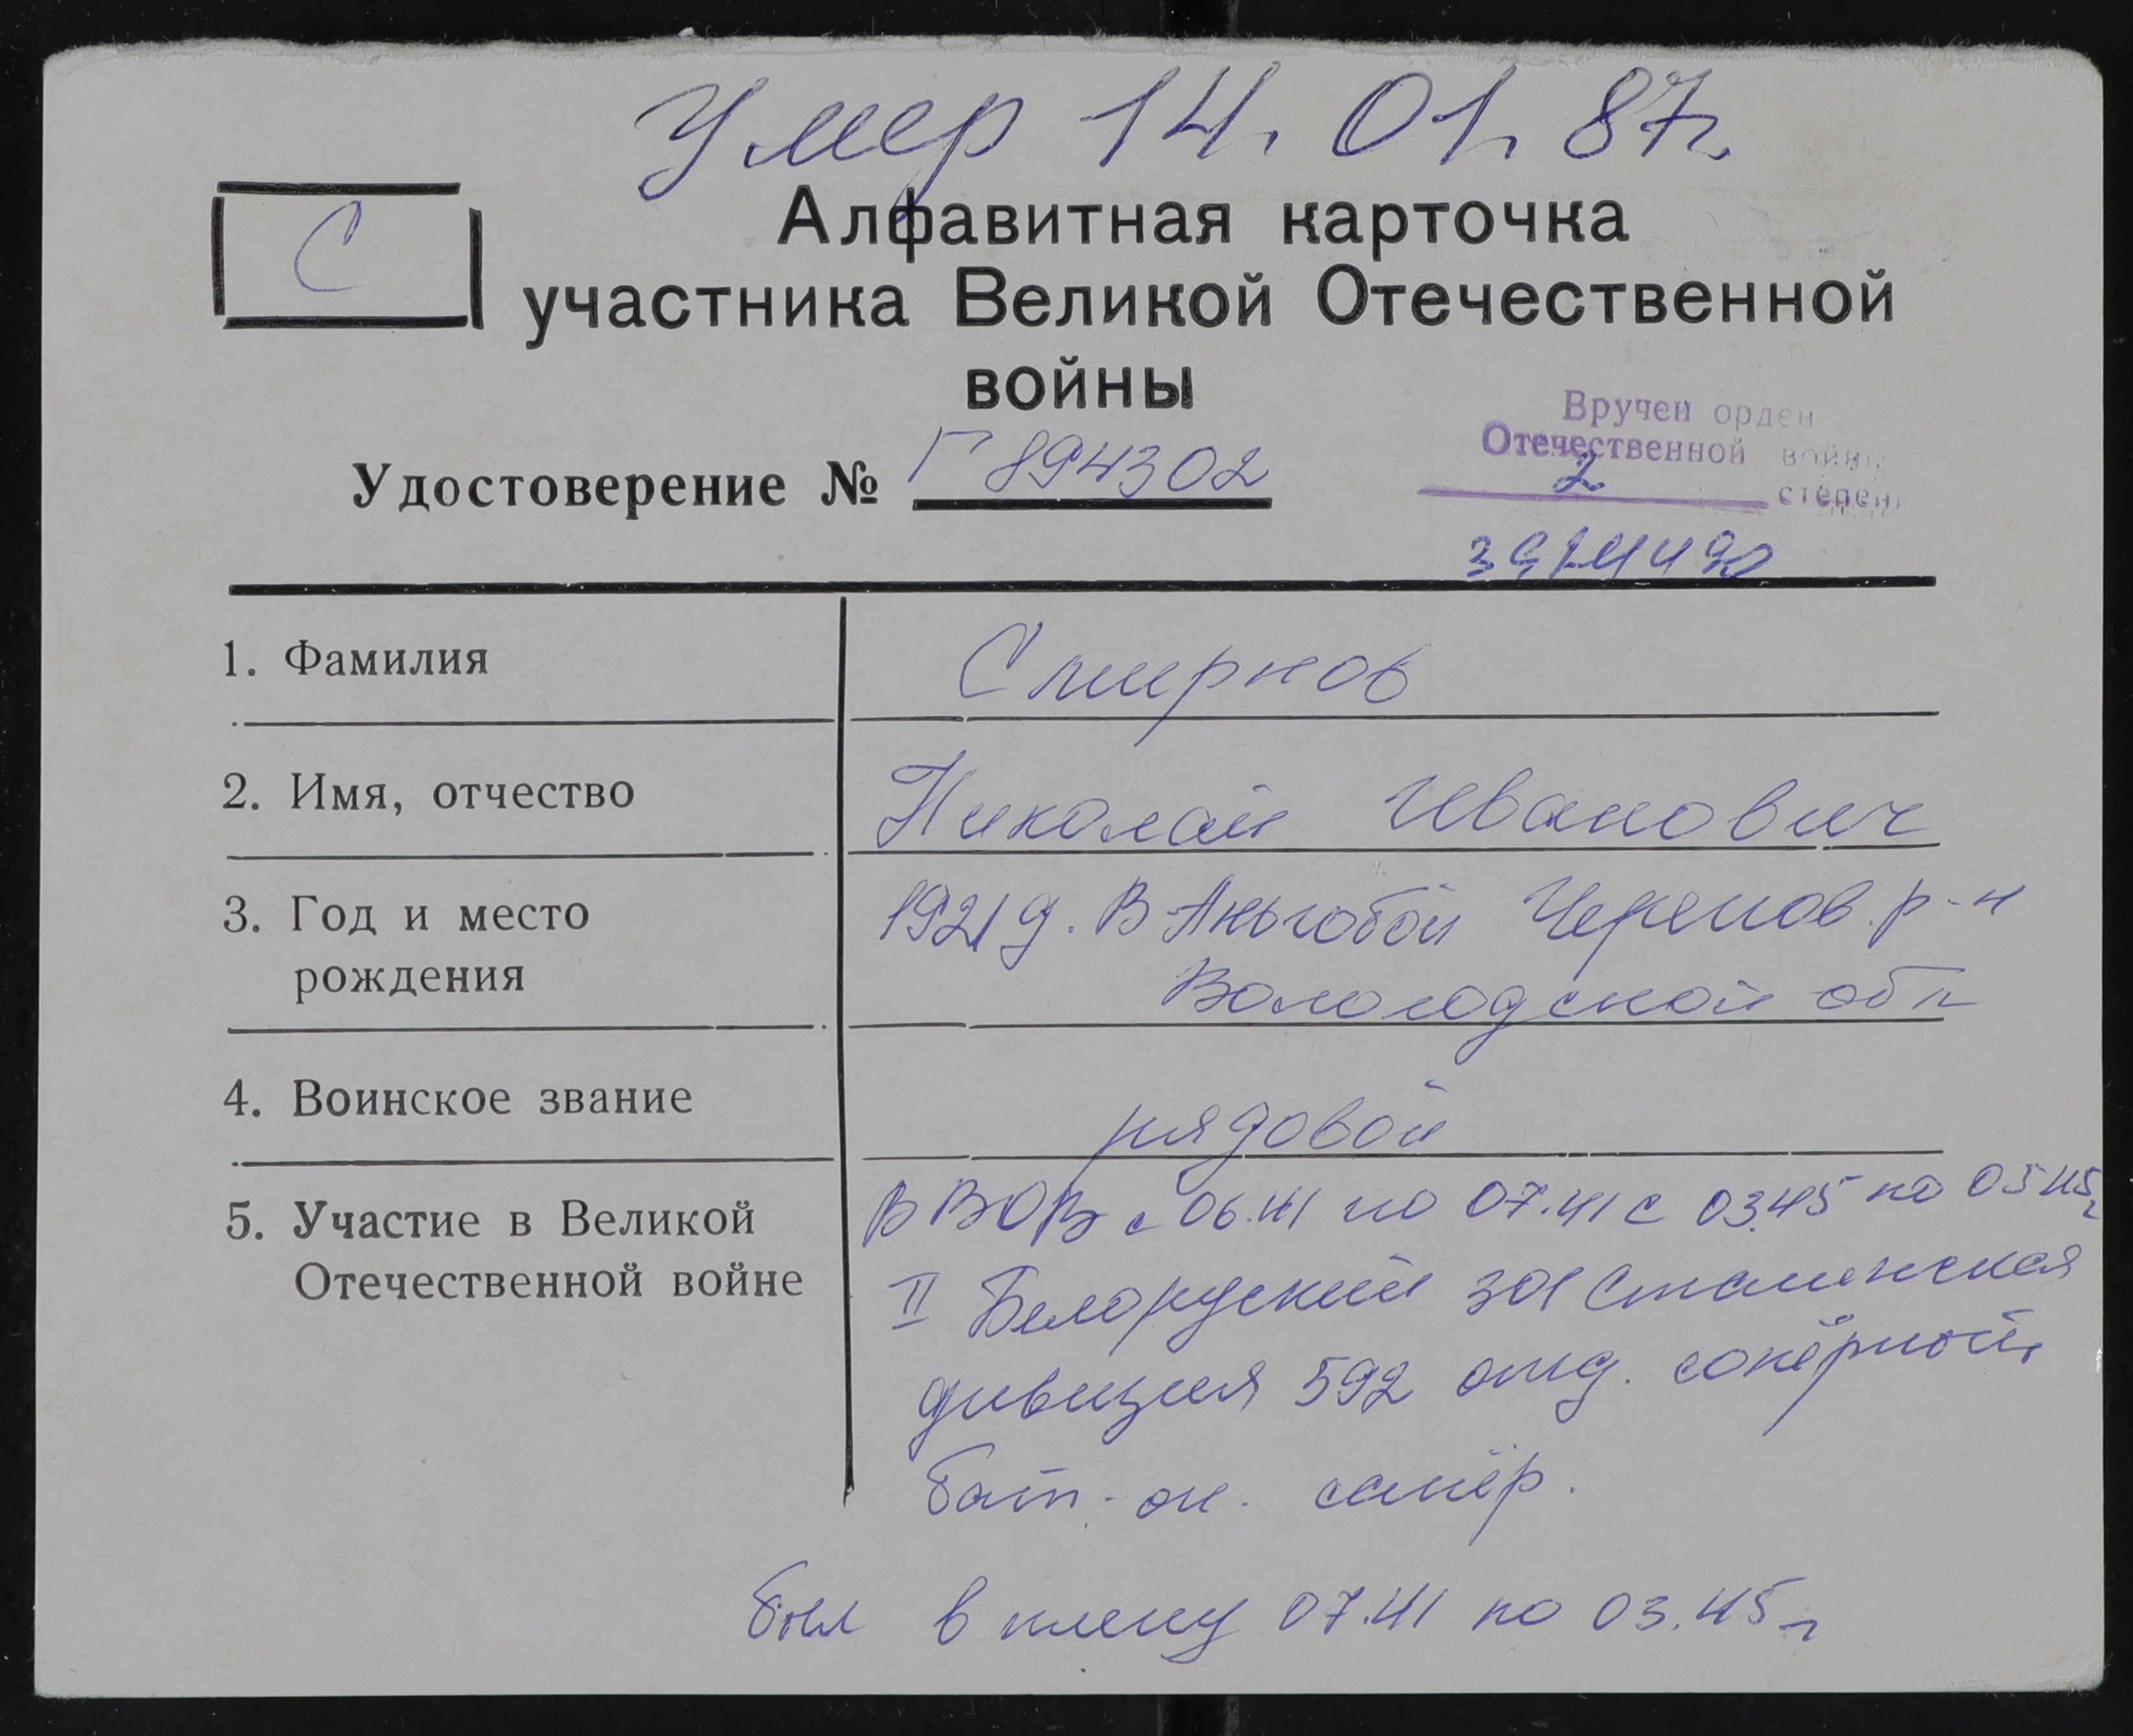 Умер 14. 01. 87г.
С
Алфавитная карточка
участника Великой Отечественной
войны
Вручен орден
Отечественной войны
2 степени
Удостоверение № Г 894302
1. Фамилия Смирнов
2. Имя, отчество Николай Иванович
3. Год и место 1921 д. В Череповр-н
рождения Вологодской обл
4. Воинское звание рядовой
5. Участие в Великой В ВОВ с 06.41 по 07.41 с 03.45 по 05.45г
Отечественной войне II Белоруский 301 Сталинская
дивизия 592 отд. сапёрной
бат-он. сапёр.
был в плену 07.41 по 03.45г